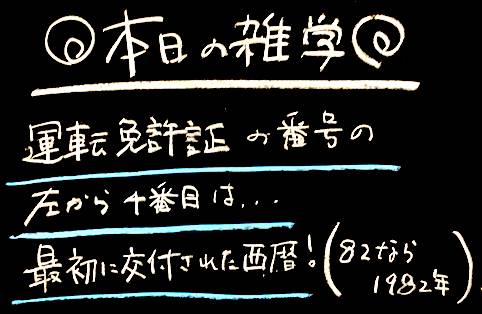 本日の雑学
運転免許証の番号の
左から4番目は...
最初に交付された西暦!(82なら
1982年)